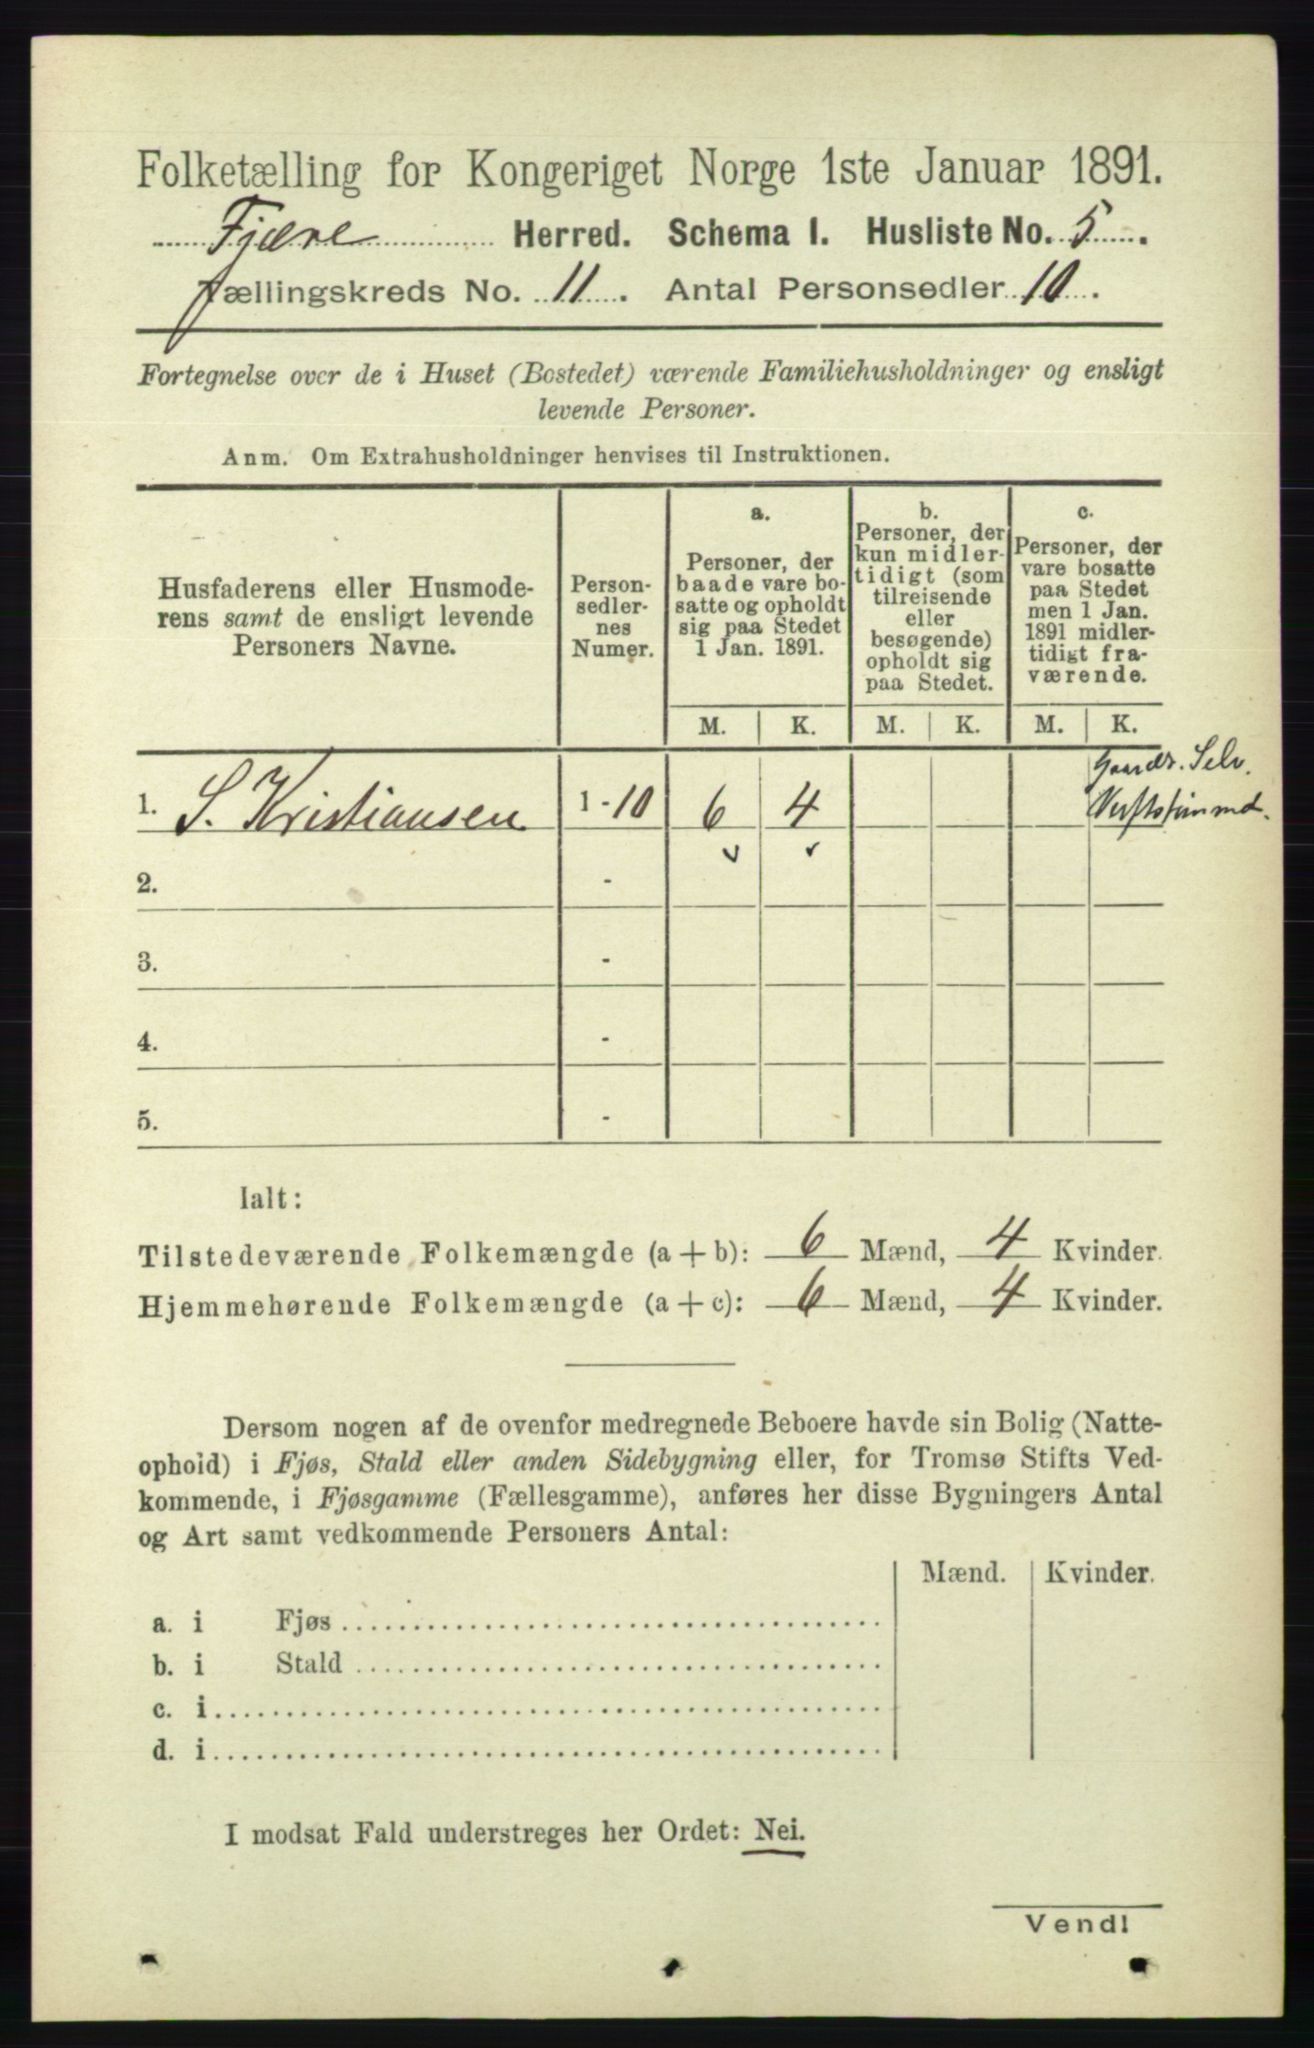 Folketælling for Kongeriget Norge 1ste Januar 1891.
Fjære Herred. Schema I. Husliste No. 5.
Tællingskreds No. 11. Antal Personsedler 10.
Fortegnelse over de i Huset (Bostedet) værende Familiehusholdninger og ensligt
levende Personer.
Anm. Om Extrahusholdninger henvises til Instruktionen.
Husfaderens eller Husmode-
rens samt de ensligt levende
Personers Navne.
Person-
sedler-
nes
Numer.
a.
Personer, der
baade vare bo-
satte og opholdt
sig paa Stedet
1 Jan. 1891.
b.
Personer, der
kun midler-
tidigt (som
tilreisende
eller
besøgende)
opholdt sig
paa Stedet.
c.
Personer, der
vare bosatte
paa Stedet
men 1 Jan.
1891 midler-
tidigt fra-
værende.
M. K. M. K. M. K.
Gaardbr. Selv.
1. S. Kristiansen 1 - 10 6 4
2. -
3. -
4. -
5. -
Ialt:
Tilstedeværende Folkemængde (a + b): 6 Mænd, 4 Kvinder.
Hjemmehørende Folkemængde (a + c): 6 Mænd, 4 Kvinder.
Dersom nogen af de ovenfor medregnede Beboere havde sin Bolig (Natte-
ophold) i Fjøs, Stald eller anden Sidebygning eller, for Tromsø Stifts Ved-
kommende, i Fjøsgamme (Fællesgamme), anføres her disse Bygningers Antal
og Art samt vedkommende Personers Antal:
Mænd. Kvinder.
a. i Fjøs
b. i Stald
c. i
d. i
I modsat Fald understreges her Ordet: Nei.
Vend!